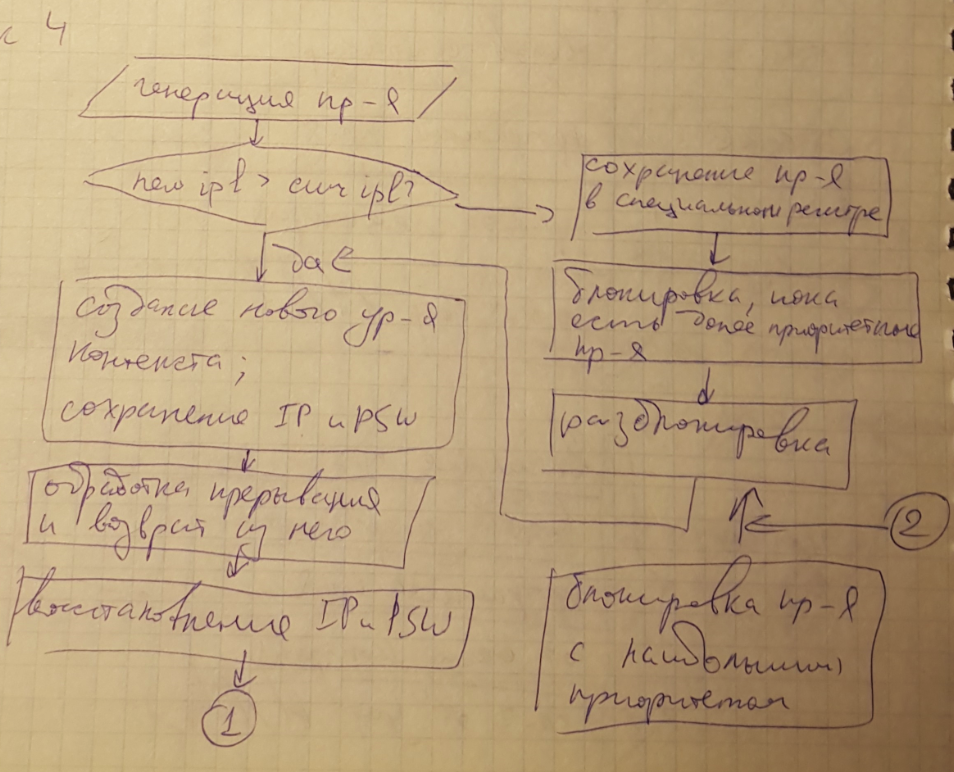 4
генерация пр-я
ipl > ipl?
да
создание нового ур-я
контекста;
сохранение IP и PSW
обработка прерывания
и возврат из него
восстановление IP и PSW
1
сохранение пр-я
в специальном регистре
блокировка, пока
есть более приоритетные
пр-я
разблокировка
2
блокировка пр-я
с наибольшим
приоритетом